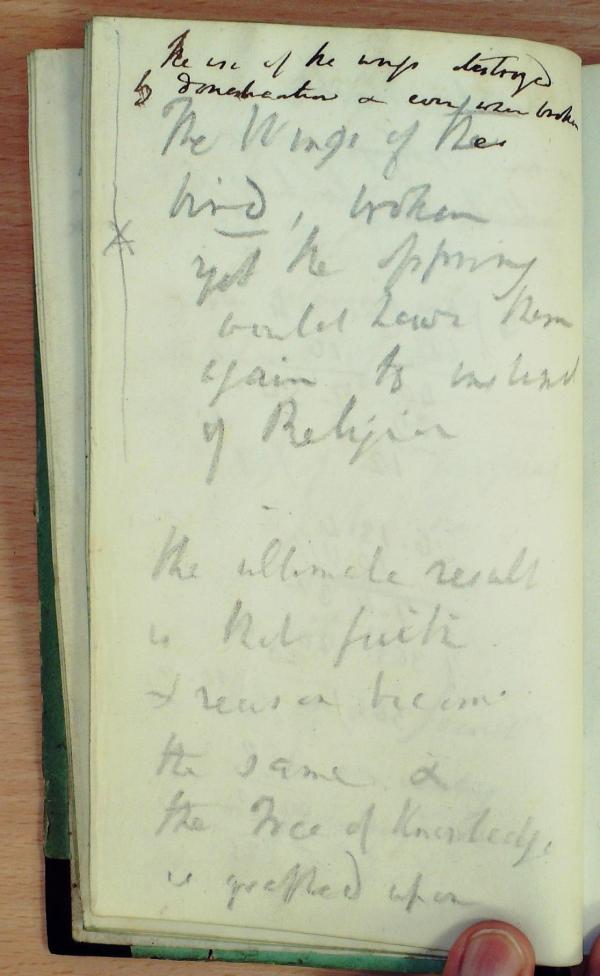 The use of the wings destroyed
by domestication & even when broken
The Wings of the
bird, broken
yet the offspring
would have them
again to instead
of Religion
the ultimate result
is that faith
& reason become
the same &
the Tree of Knowledge
is graffted upon